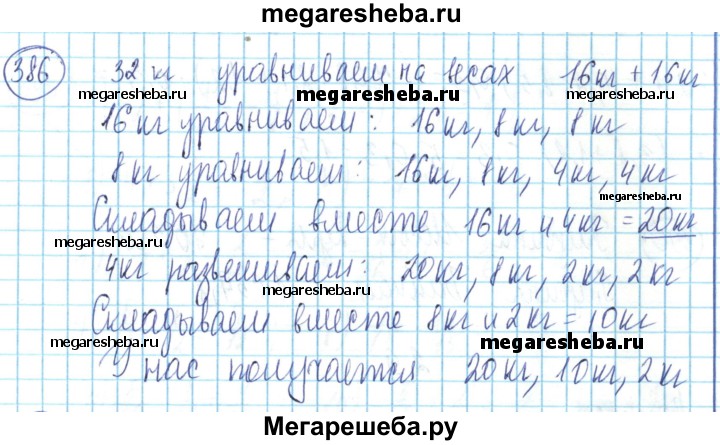 megaresheba.ru
386 32 кг уравниваем на весах 16кг + 16кг
megaresheba.ru megaresheba.ru megaresheba.ru
16 кг уравниваем: 16кг, 8кг, 8 кг
8 кг уравниваем: 16кг, 8кг, 4кг, 4 кг
megaresheba.ru
Складываем вместе 16кг и 4кг = 20кг
megaresheba.ru
4кг развешиваем: 20кг, 8кг, 2кг, 2 кг
megaresheba.ru
Складываем вместе 8кг и 2кг = 10кг
megaresheba.ru megaresheba.ru
У нас получается 20кг, 10кг, 2кг
Мегарешеба.ру